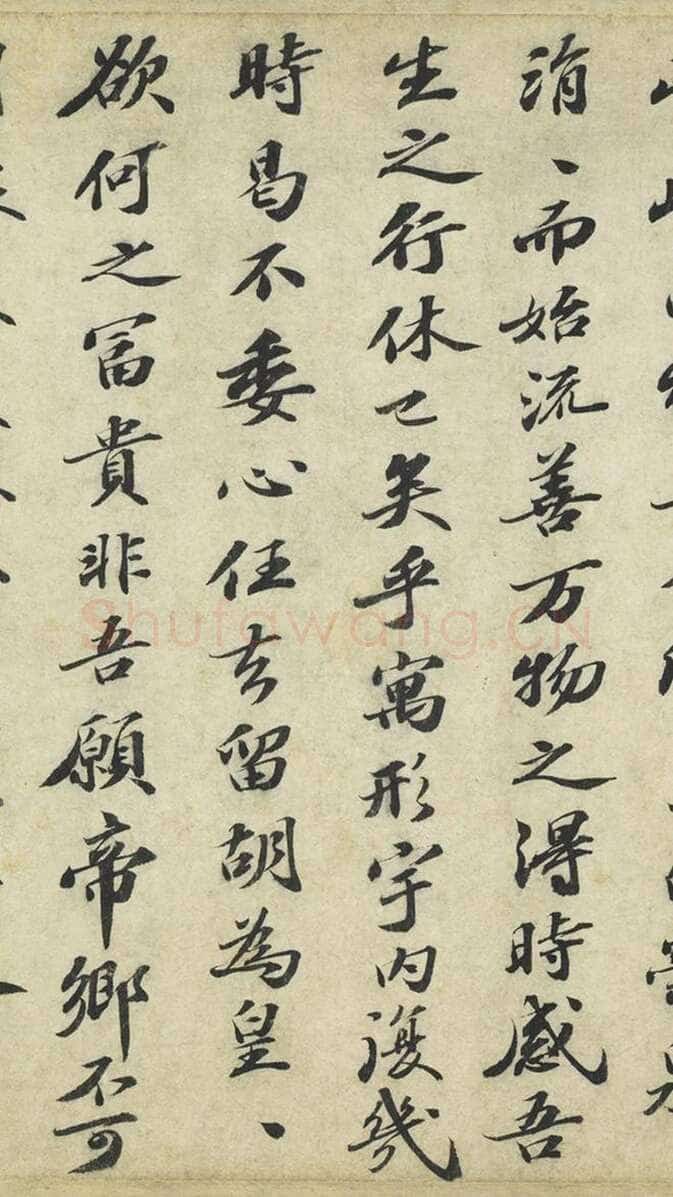 涓、而始流善万物之得時感吾
生之行休已矣乎寓形宇内復幾
時曷不委心任去留胡為皇、
欲何之冨貴非吾願帝鄉不可
Shufawang.CN